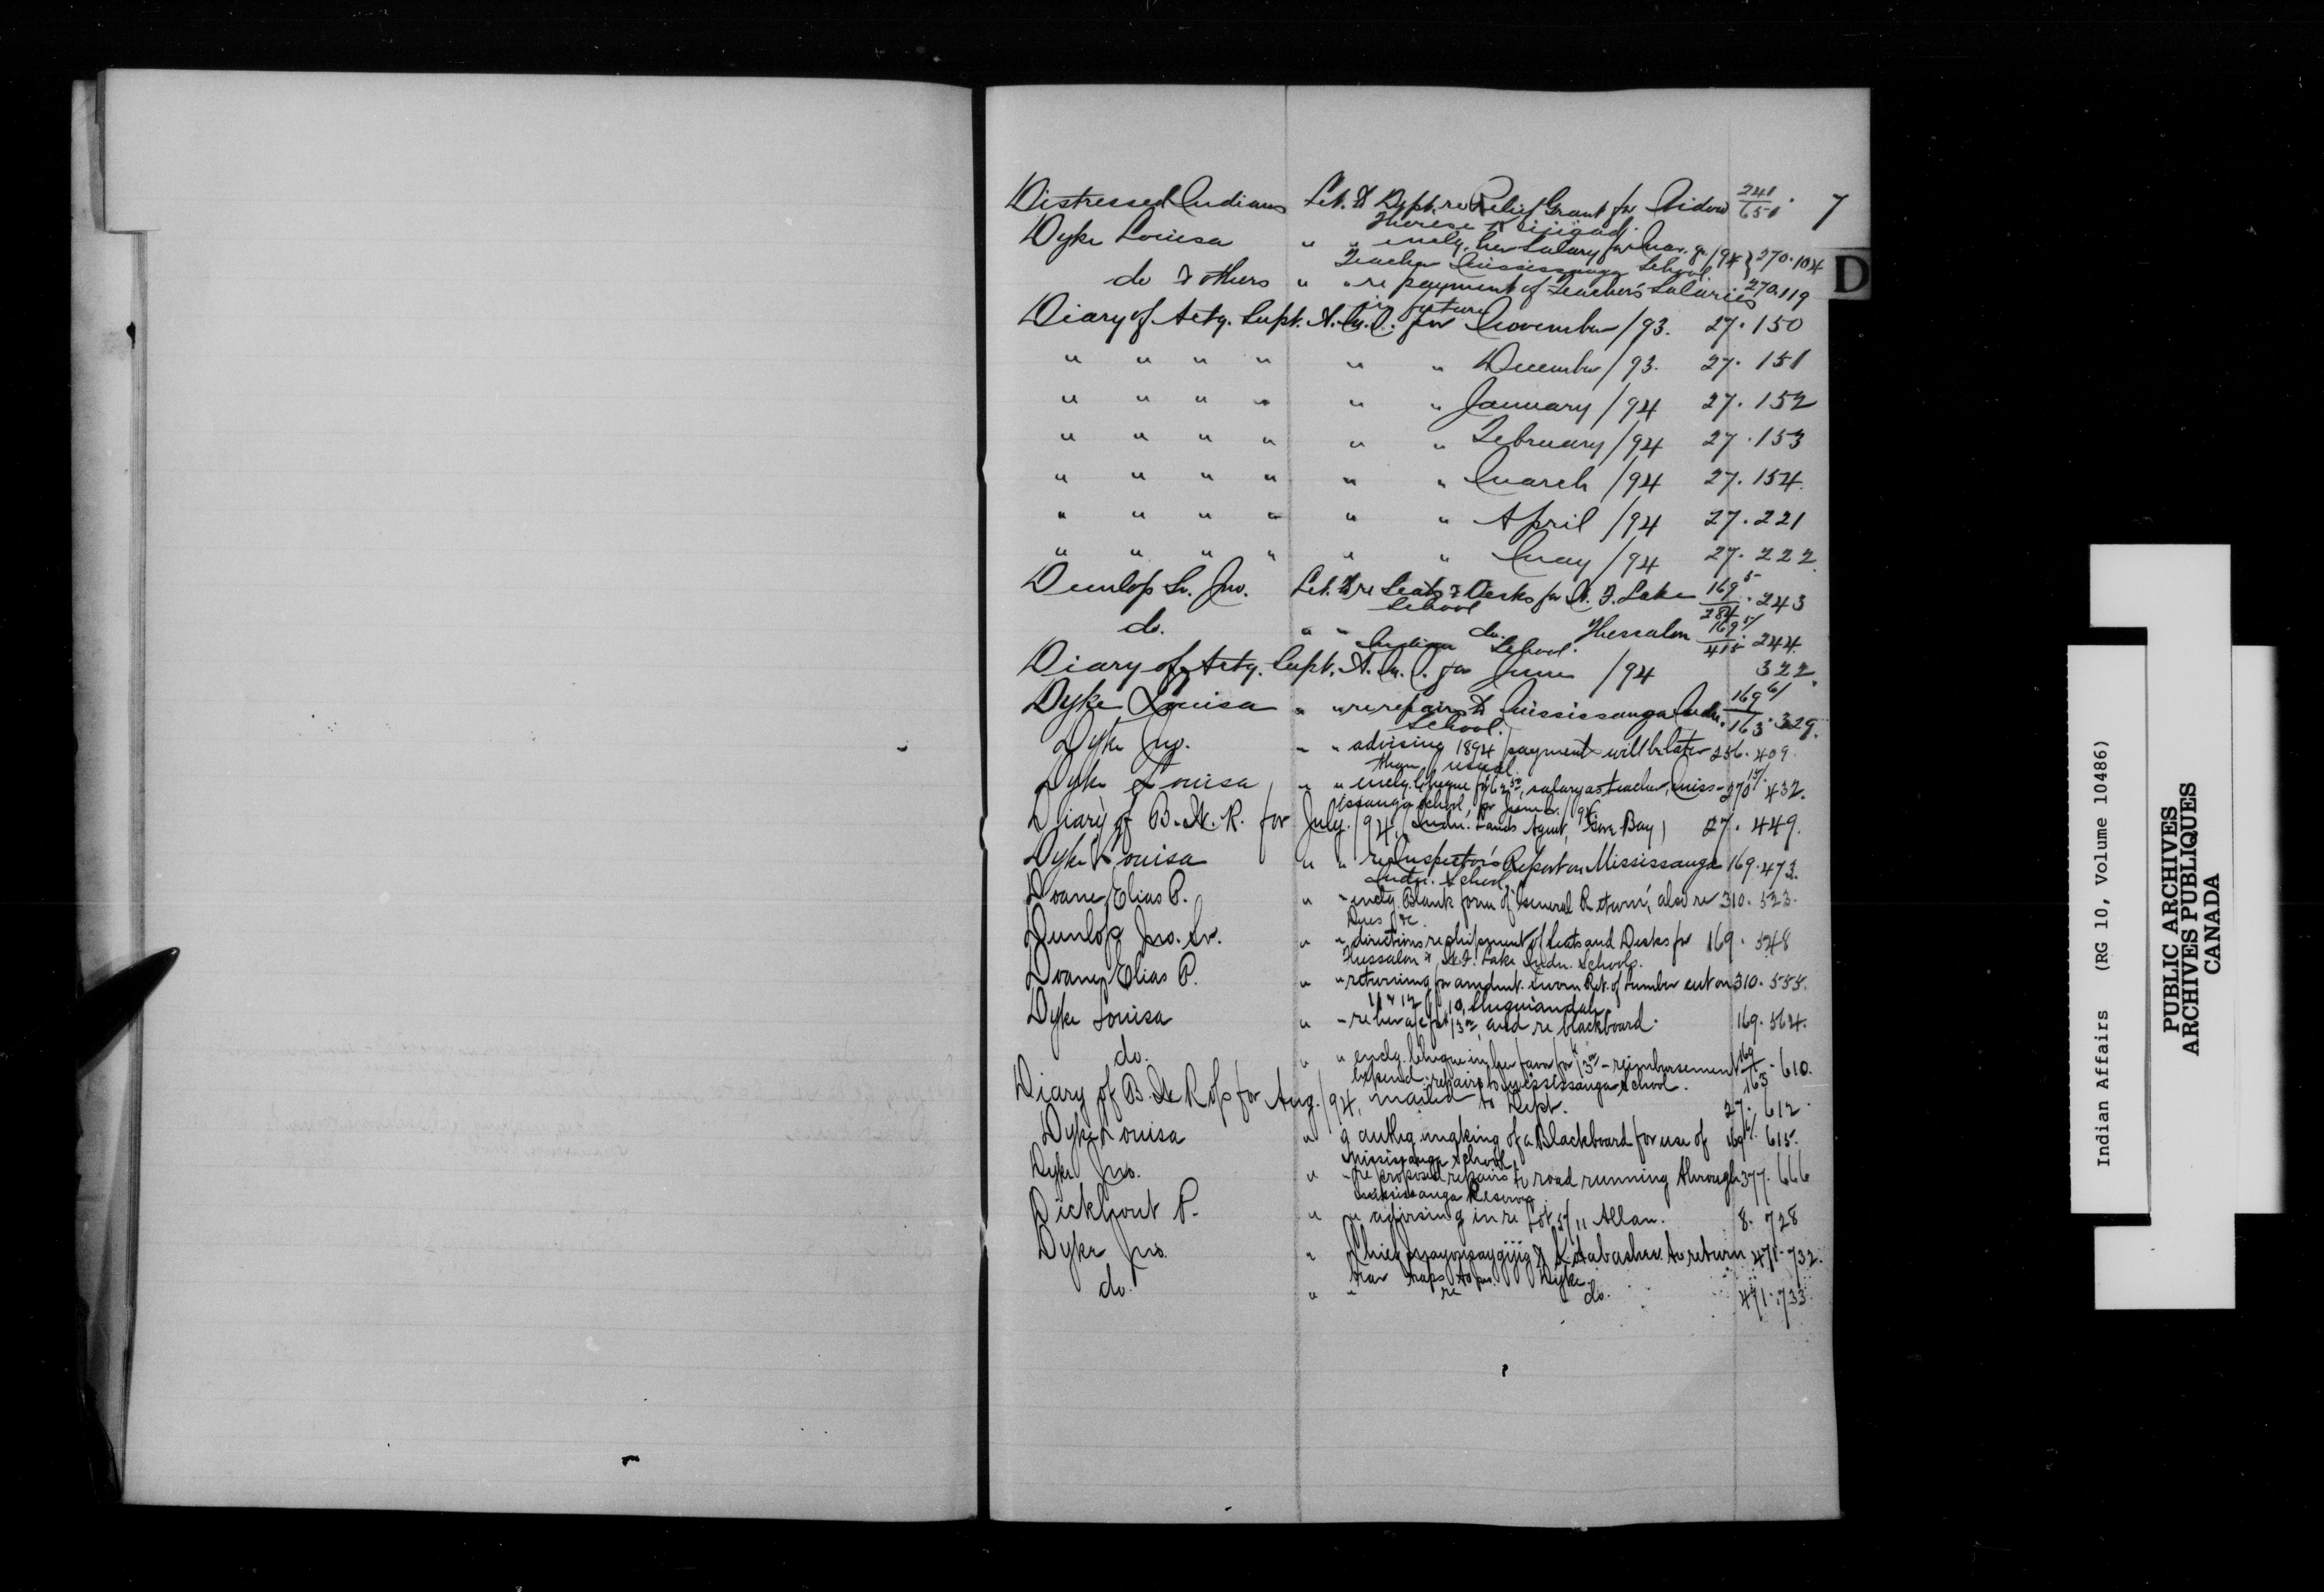 7
D
Distressed Indians Let. to Dept. re Relief Grant for Widow 241/651.
Therese
Dyke Louisa " " encly. her Salary for Mar. qr/94 } 270.104
Teacher Mississauga School.
do & others " " re payment of Teacher's Salaries 270.119
in future
Diary of Actg. Supt. for November/93. 27.150
" " " " " " December/93. 27.151
" " " " " " January/94 27.152
" " " " " " February/94 27.153
" " " " " " March/94 27.154.
" " " " " " April/94 27.221
" " " " " " May/94 27.222.
Dunlop Sr. Jno. Let. to re Seats & Desks for W. F. Lake 169 5/284.243
School
do. " " do. Thessalon 169 5/415.244.
Indian School.
Diary of Actg. Supt. for June /94 322.
Dyke Louisa " " re repairs to Mississauga Indn. 169 6/163.329.
School.
Dyke Jno. " " advising 1894 payment will be later 256.409.
than usual.
Dyke Louisa " " encly. Cheque for 62.50, salary as teacher, Miss- 270 15/.432.
issauga School, for June qr./94
Diary of B.W.R. for July/94, (Indn. Lands Agent, Gore Bay) 27.449.
Dyke Louisa " " re Inspector's Report on Mississauga 169.473.
Indn. School
Doane, Elias P. " " encly. Blank form of General Return, also re 310.523.
Dues &c
Dunlop Jno. Sr. " " directions re shipment of Seats and Desks for 169.548
Thessalon & W.F. Lake Indn. Schools.
Doane, Elias P. " " returning for amdmt. sworn Ret. of Lumber cut on 310.555.
11 & 12 / 10, Sheguiandah.
Dyke Louisa " " re her a/c for 13.00, and re blackboard. 169.564.
do. " " encly. Cheque in her favor for 13.00 - reimbursement 169/163.610.
expend. repairs to Mississauga School.
Diary of B.W. Ross for Aug./94, mailed to Dept. 27.612.
Dyke Louisa " " authg. making of a Blackboard for use of 169 6/. 615.
Mississauga School
Dyke Jno. " " re proposed repairs to road running through 377.666
Mississauga Reserve
Dickhout P. " " advising in re Lot 5/11 Allan. 8.728
Dyke Jno. " Chief & to return 471.732.
traps to Dyke.
do. " " re do. 471.733.
Indian Affairs (RG 10, Volume 10486)
PUBLIC ARCHIVES
ARCHIVES PUBLIQUES
CANADA